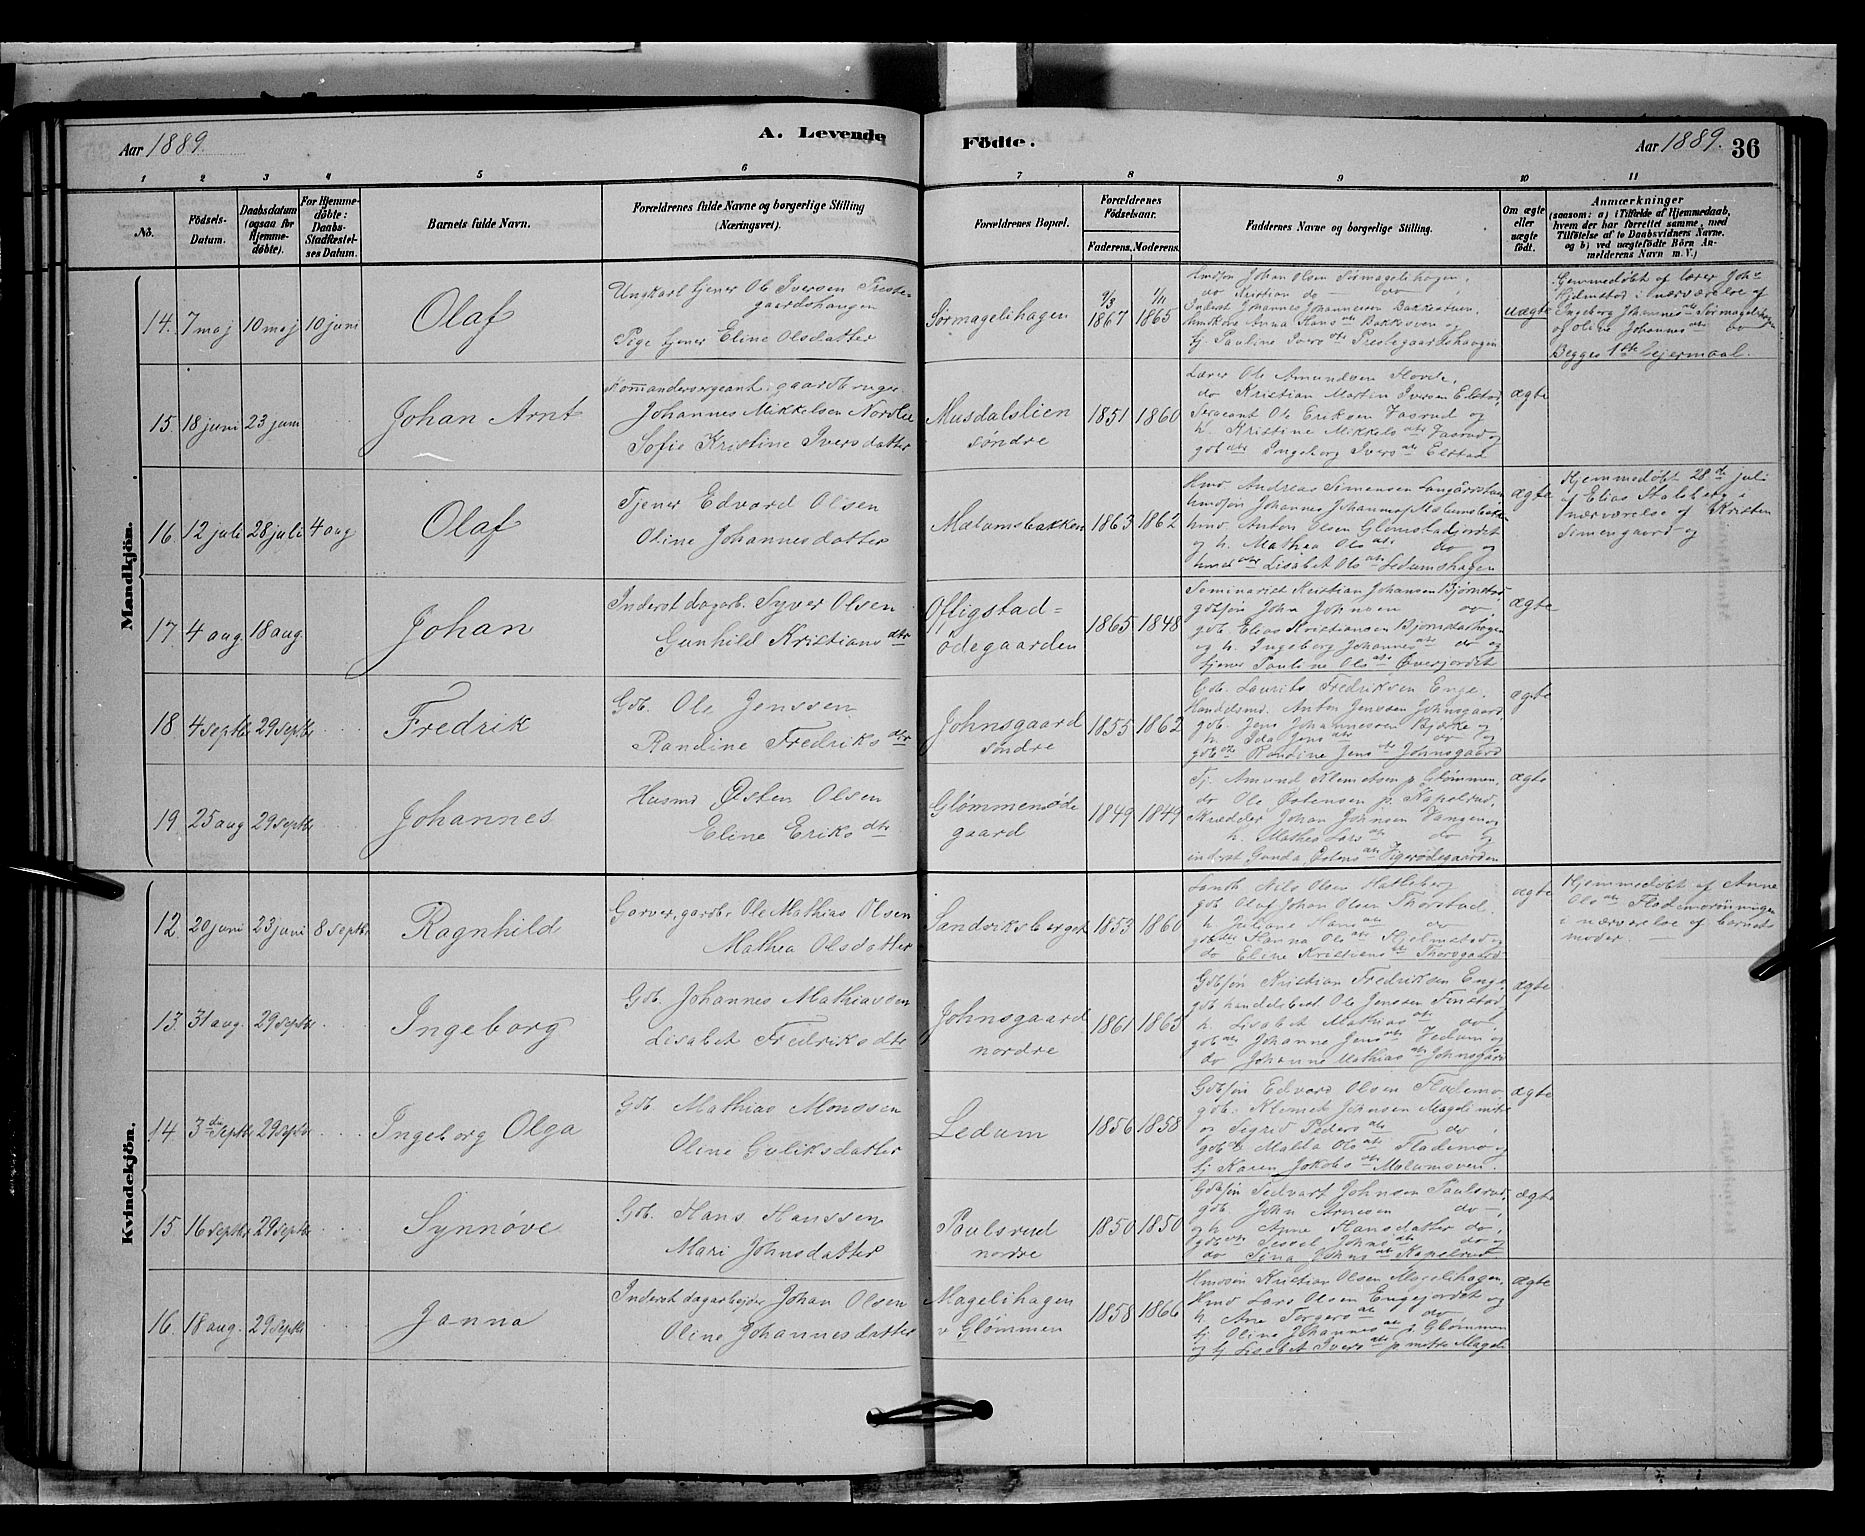 Aar 1889.
A. Levende Födte.
Aar 1889.
36
1 2 3 4 5 6 7 8 9 10 11
No.
Födsels-
Datum.
Daabsdatum
(ogsaa for
Hjemme-
döbte).
For Hjemme-
döbte:
Daabs-
Stadfæstel-
ses Datum.
Barnets fulde Navn.
Forældrenes fulde Navne og borgerlige Stilling
(Næringsvei).
Forældrenes Bopæl.
Forældrenes
Födselsaar.
Faderens. Moderens.
Faddernes Navne og borgerlige Stilling.
Om ægte
eller
uægte
födt.
Anmærkninger
(saasom: a) i Tilfælde af Hjemmedaab,
hvem der har forrettet samme, med
Tilföielse af to Daabsvidners Navne,
og b) ved uægtefödte Börn An-
melderens Navn m. V.)
Mandkjön.
14. 7 maj 10 maj 10 juni
Olaf
Ungkarl tjener Ole Iversen Preste-
gaardshaugen
Pige tjener Eline Olsdatter
Sørmagelihagen
9/3 1867
1/11 1865
Hmdsøn Johan Olsen Sørmagelihagen,
do Kristian do do
Inderst Johannes Johannessen Bakkestuen,
hmkone Anna Hans dtr Bakksven og
tj. Pauline Ivers dtr Prestegaardshaugen
uægte
Hjemmedøbt af lærer Joh.
Hjelmstad i nærværelse af
Ingeborg Johannes dtr Sørmagelihagen
og Oline Johannes dtr do
Begges 1ste lejermaal.
15. 18 juni 23 juni
Johan Arnt
Kommandersergeant, gaardbruger
Johannes Mikkelsen Nordlie
Sofie Kristine Iversdatter
Musdalslien
søndre
1851 1860
Lærer Ole Amundsen Hovde,
do Kristian Martin Iversen Elstad,
Sergeant Ole Eriksen Vasrud og
h. Kristine Mikkels dtr Vasrud og
gdb dtr Ingeborg Ivers dtr Elstad
ægte
16. 12 juli 28 juli 4 aug
Olaf
Tjener Edvard Olsen
Oline Johannesdatter
Mælumsbakken
1863 1862
Hmd Andreas Simensen
hmdsøn Johannes Johannes. Mælumsbakken
hmd. Anton Olsen Glømstadjordet
og h. Mathea Ols dtr do og
hmd dtr Lisabet Ols dtr Ledumshagen
ægte
Hjemmedøbt 28de juli
af Elias Stalsberg i
nærværelse af Kristen
Simengaard og
17. 4 aug. 18 aug.
Johan
Inderst dagarb. Syver Olsen
Gunhild Kristians dtr
Offigstad=
ødegaarden
1865 1848
Seminarist Kristian Johansen Bjørnstad,
gdbsøn John Johnsen do,
gdb. Elias Kristiansen Bjørnstadhagen
og h. Ingeborg Johannes dtr do og
tjener Pauline Ols dtr Øverjordet
ægte
18. 4 septbr 29 septbr
Fredrik
Gdb. Ole Jenssen
Randine Fredriks dtr
Johnsgaard
søndre
1855 1862
Gdb. Laurits Fredriksen Enge,
Handelsmd. Anton Jenssen Johnsgaard,
gdb. Jens Johannessen Bjerke og
h. Ida Jens dtr do og
gdb dtr Randine Jens dtr Johnsgaard
ægte
19 25 aug 29 septbr
Johannes
Husmd Østen Olsen
Eline Eriks dtr
Glømmensøde
gaard
1849 1849
Tj. Amund Klemetsen p. Glømmen,
do Ole Østensen p. Kapelrud,
Skrædder Johan Johnsen Vangen og
h. Mathea Lars dtr do og
inderst Gunda Estens dtr
ægte
Kvindekjön.
12. 20 juni 23 juni 8 septbr
Ragnhild
Garver, gardbr. Ole Mathias Olsen
Mathea Olsdatter
Sandviksberget
1853 1860
Landh. Nils Olsen Hatleberg
gdb Olaf Johan Olsen Thorstad,
h. Juliane Hans dtr do
gdb dtr Hanna Ols dtr Hjelmstad og
do Eline Kristians dtr Thorsgaard
ægte
Hjemmedøbt af Anne
Ols dtr Flademorønningen
i nærværelse af barnets
moder
13. 31 aug. 29 septbr
Ingeborg
Gdb. Johannes Mathiassen
Lisabet Fredriks dtr
Johnsgaard
nordre
1861 1863
Gdbsøn Kristian Fredriksen Enge,
gdb handelsbetj. Ole Jenssen Finstad,
h. Lisabet Mathias dtr do,
gdb dtr Johanne Jens dtr Ledum og
do Johanne Mathias dtr Johnsgard
ægte
14 3die septbr 29 septbr
Ingeborg Olga
Gdb. Mathias Monssen
Oline Guliksdatter
Ledum
1856 1858
Gdbsøn Edvard Olsen Flademo,
gdb. Klemet Johnsen Mageli
og Sigrid Peders dtr do,
gdb dtr Malla Ols dtr Flademo og
tj Karen Jokobs dtr Mælumsveen.
ægte
15. 16 septbr 29 septbr
Synnøve
Gdb. Hans Hanssen
Mari Johnsdatter
Paulsrud
nordre
1850 1850
Gdbsøn Sedvart Johnsen Paulsrud,
gdb. John Arnesen do,
og h. Anne Hansdatter do,
gdb dtr Sessel Johns dtr do og
do Sina Johns dtr Kapelrud
ægte
16. 18 aug. 29 septbr
Janna
Inderst dagarbejder Johan Olsen
Oline Johannesdatter
Magelihagen
v Glømmen
1858 1866
Hmdsøn Kristian Olsen Magelihagen,
Hmd Lars Olsen Engejordet og
h. Ane Torgers dtr do
tj. Oline Johannes dtr i Glømmen
og tj. Lisabet Ivers dtr p nørtre Mageli
ægte